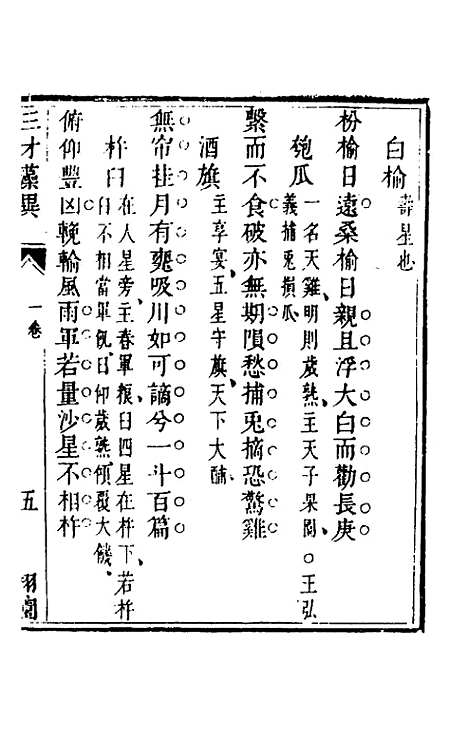 白榆 壽星也
枌榆日遠桑榆日親且浮大白而勸長庚
匏瓜 一名天雞明則歲熟主天子果園○王弘
義捕兎損瓜
繫而不食破亦無期隕愁捕兎摘恐驚雞
酒旗 主享宴五星守旗天下大酺
無帘挂月有甕吸川如可謫兮一斗百篇
杵臼 在人星旁主春軍糧臼四星在杵下若杵
臼不相當軍飢臼仰歲熟傾覆大饑
俯仰豐凶輓輸風雨軍若量沙星不相杵
三才藻異 一卷 五